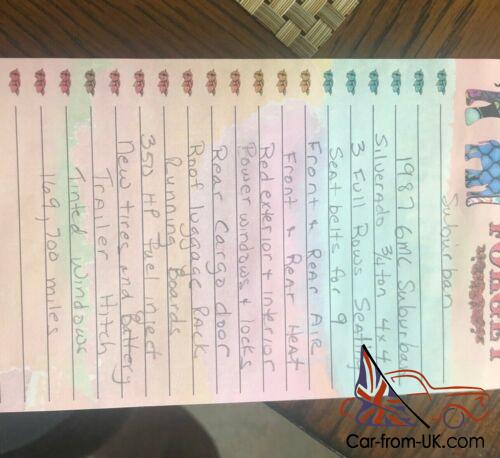 Suburban
1987 GMC Suburban
Silverado 3/4 ton 4x4
3 Full Rows Seating
Seat belts for 9
Front & Rear Air
Front & Rear Heat
Red exterior & interior
Power windows & locks
Rear cargo door
Roof luggage Rack
Running Boards
350 HP Fuel inject
New tires and Battery
Trailer Hitch
Tinted windows
169,700 miles
Car-from-UK.com